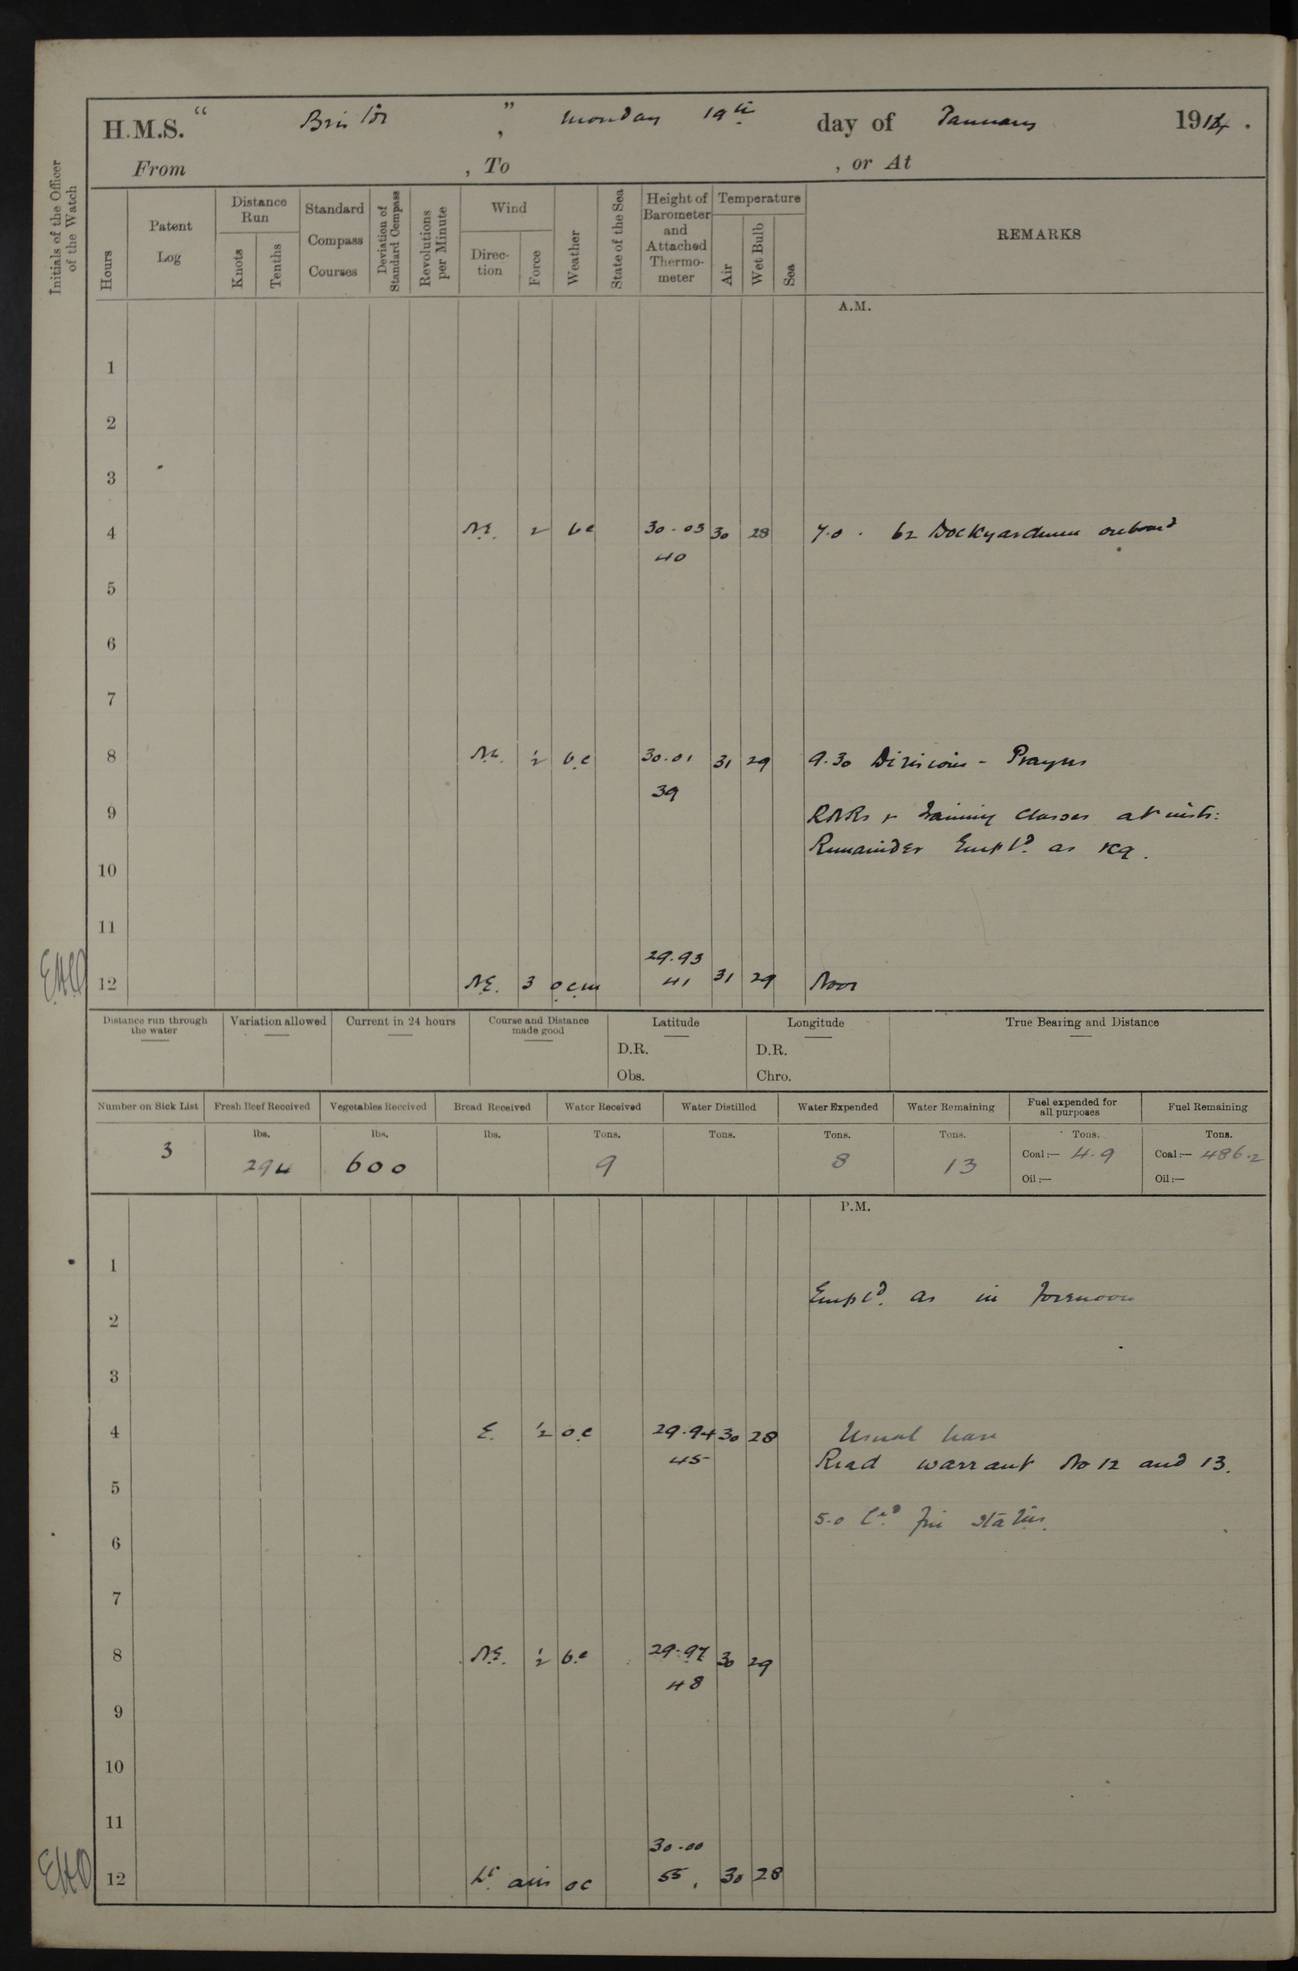 H.M.S. " Bristol ", Monday 19th day of January 1914.
From , To , or At
Initials of the Officer of the Watch
Hours
Patent Log
Distance Run
Knots
Tenths
Standard Compass Courses
Deviation of Standard Compass
Revolutions per Minute
Wind
Direc-tion
Force
Weather
State of the Sea
Height of Barometer and Attached Thermo-meter
Temperature
Air
Wet Bulb
Sea
REMARKS
A.M.
1
2
3
4 N.E. 2 bc 30.03 30 28 7.0. 62 Dockyardmen onboard
40
5
6
7
8 N.E. ½ b.c 30.01 31 29 9.30 Divisions - Prayers
39
9 RNRs & Training Classes at instr:
Remainder Empl'd. as req.
10
11
29.93
EHO 12 N.E. 3 o.c.m 41 31 29 Noon
Distance run through the water
Variation allowed
Current in 24 hours
Course and Distance made good
Latitude
D.R.
Obs.
Longitude
D.R.
Chro.
True Bearing and Distance
Number on Sick List
Fresh Beef Received
Vegetables Received
Bread Received
Water Received
Water Distilled
Water Expended
Water Remaining
Fuel expended for all purposes
Fuel Remaining
3
lbs. 294
lbs. 600
lbs.
Tons. 9
Tons.
Tons. 8
Tons. 13
Tons. Coal:— 4.9
Oil:—
Tons. Coal:— 486.2
Oil:—
P.M.
1
Empl'd. as in forenoon
2
3
4 E. ½ o.c 29.94 30 28 Usual leave
45 Read warrant No 12 and 13.
5
5.0 Cld fire stations.
6
7
8 N.E. ½ b.c 29.97 30 29
48
9
10
11
30.00
EHO 12 Lt. airs oc 55. 30 28